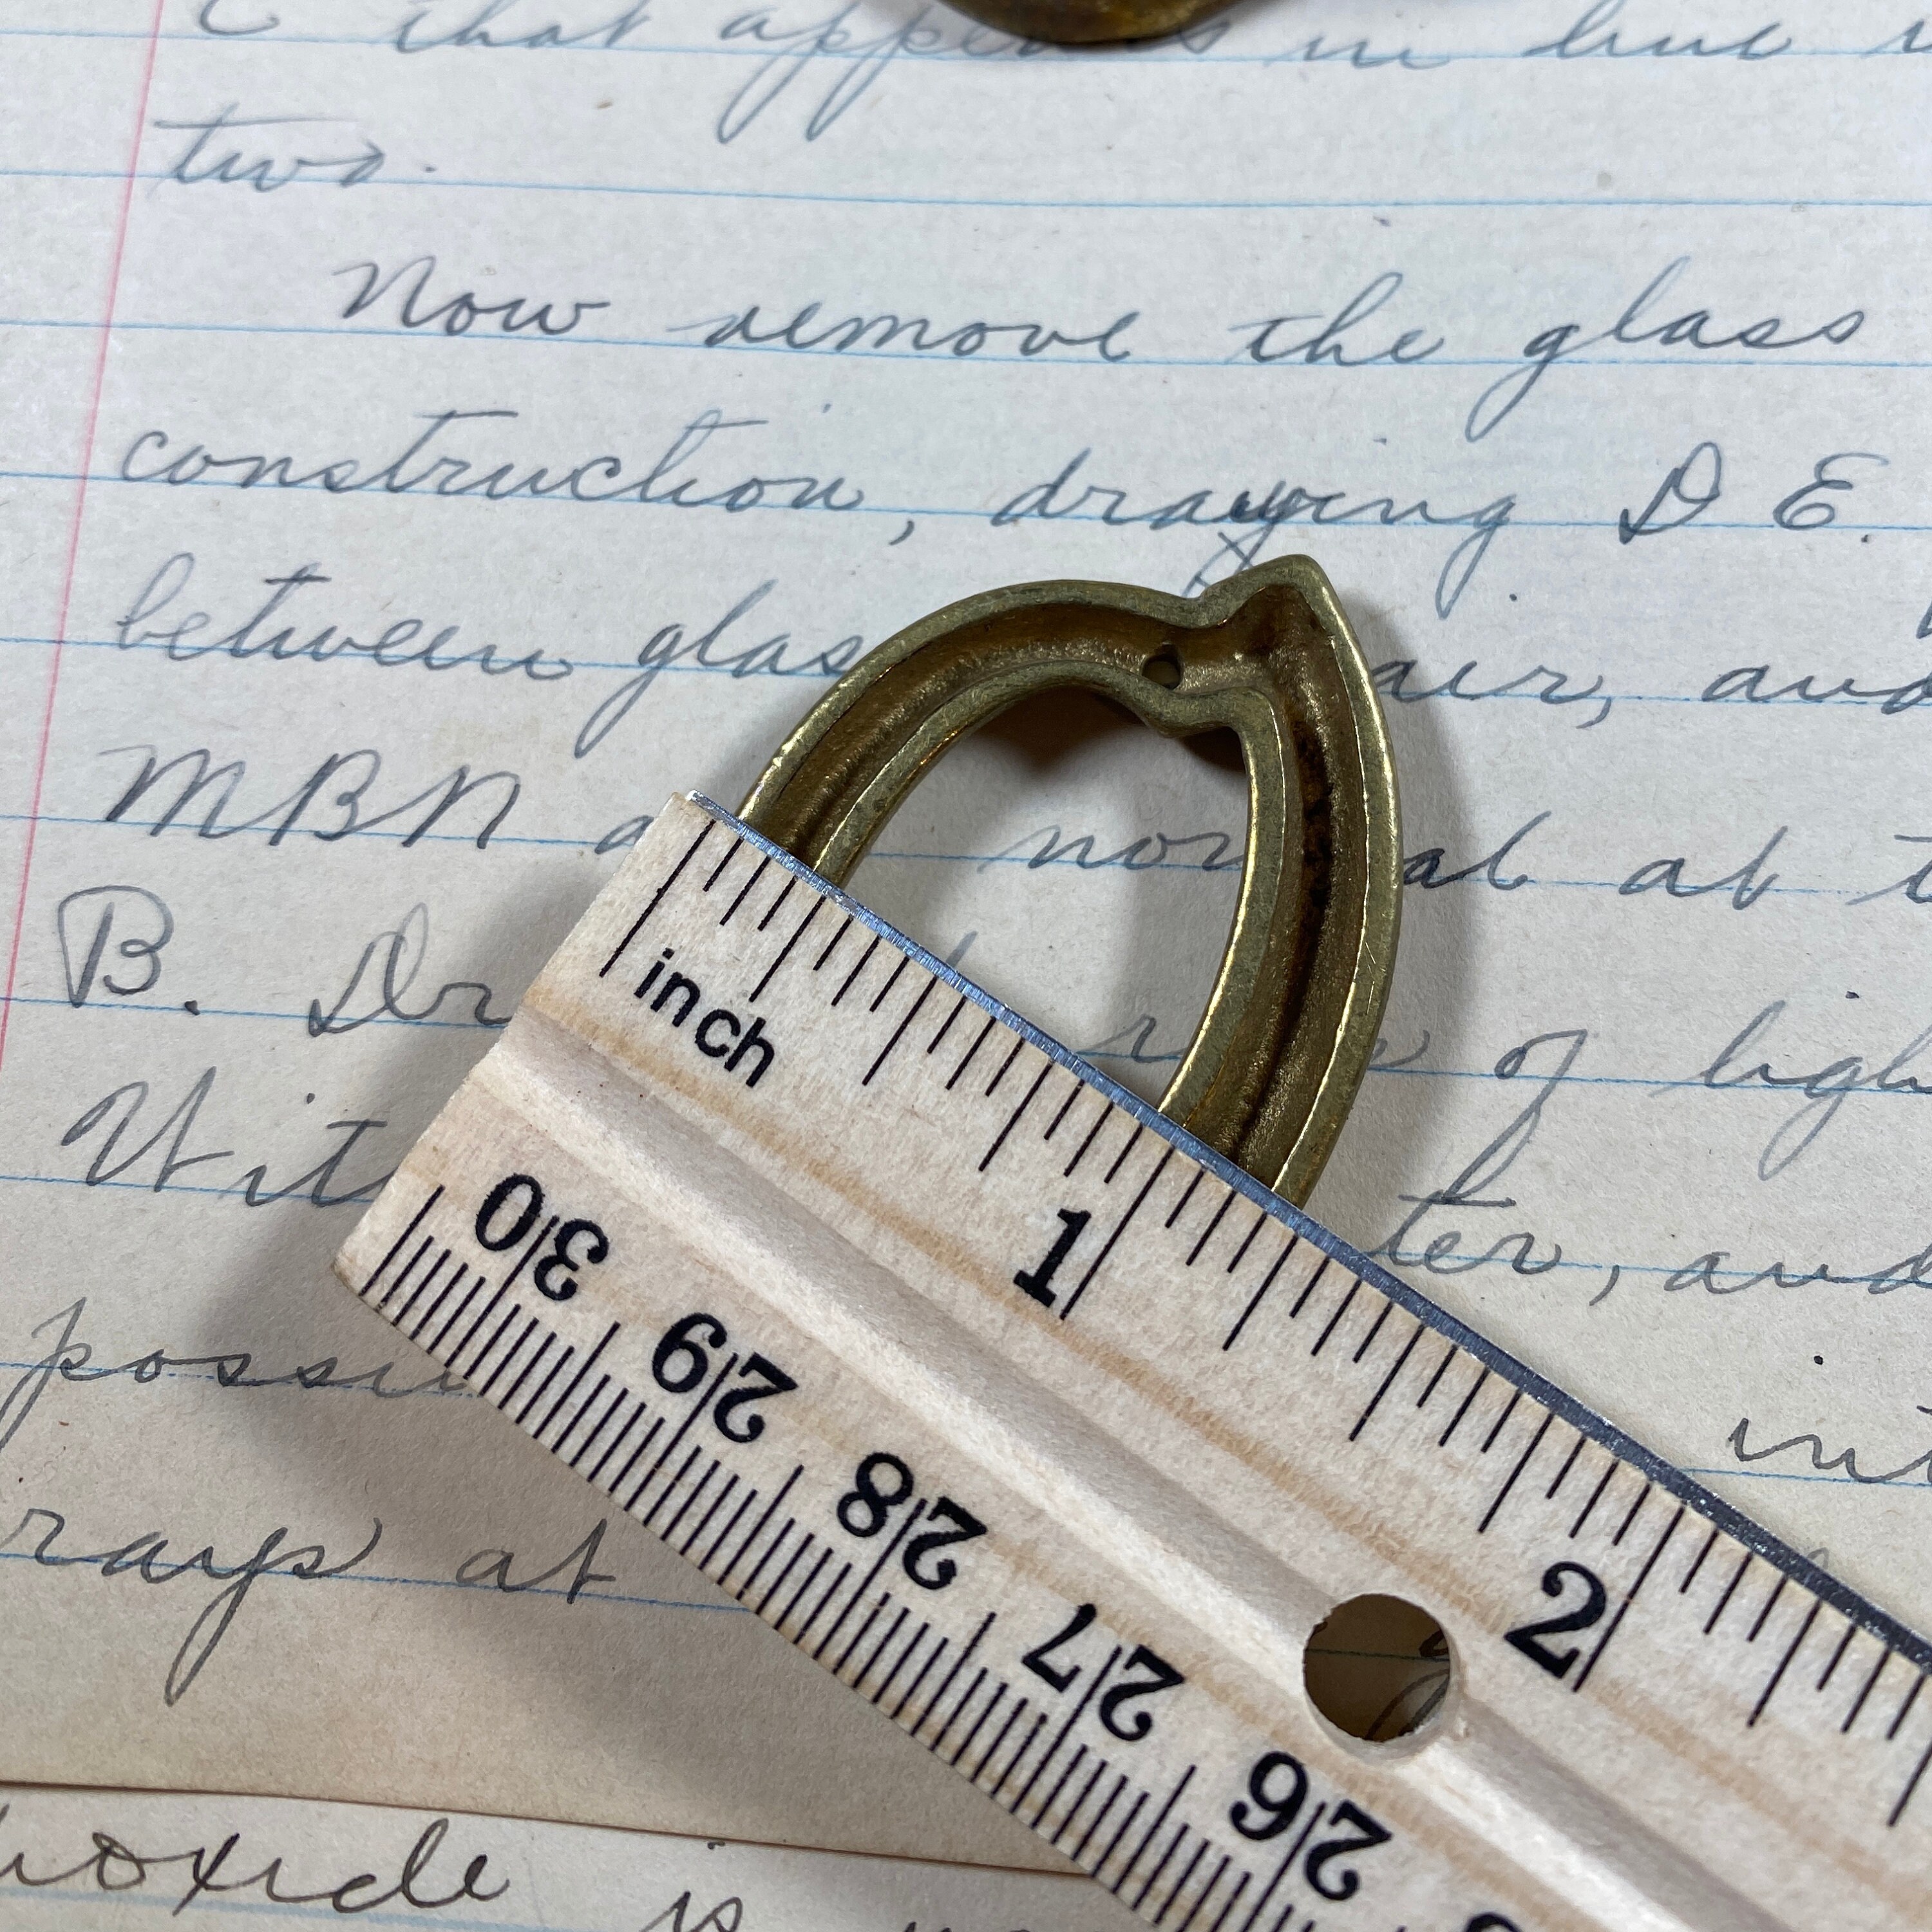 that appears in line
two.
Now remove the glass
construction, drawing D E.
between glas air, and
MBN a nor al at t
B. Dr of ligh
Wit ter, and
possi int
rays at
oxide is
inch 1 2
30 29 28 27 26